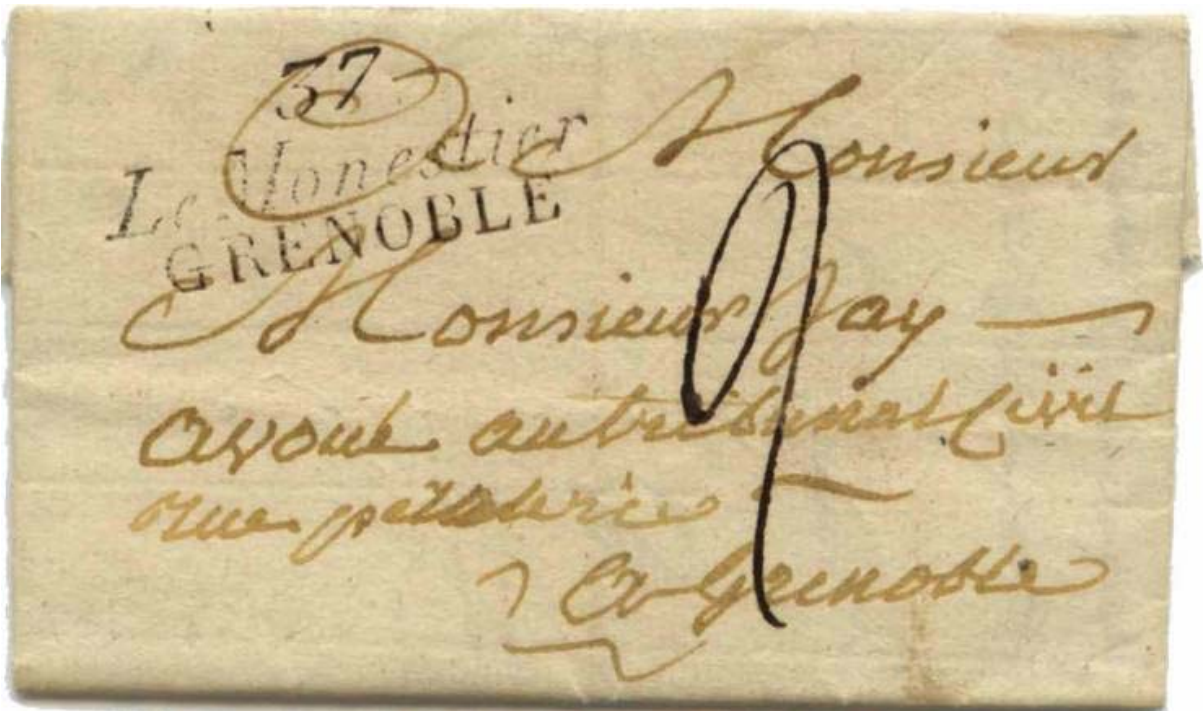 37
Le Monestier
GRENOBLE
Monsieur
Monsieur Jay
avoué au tribunal Civil
rue
a Grenoble
2